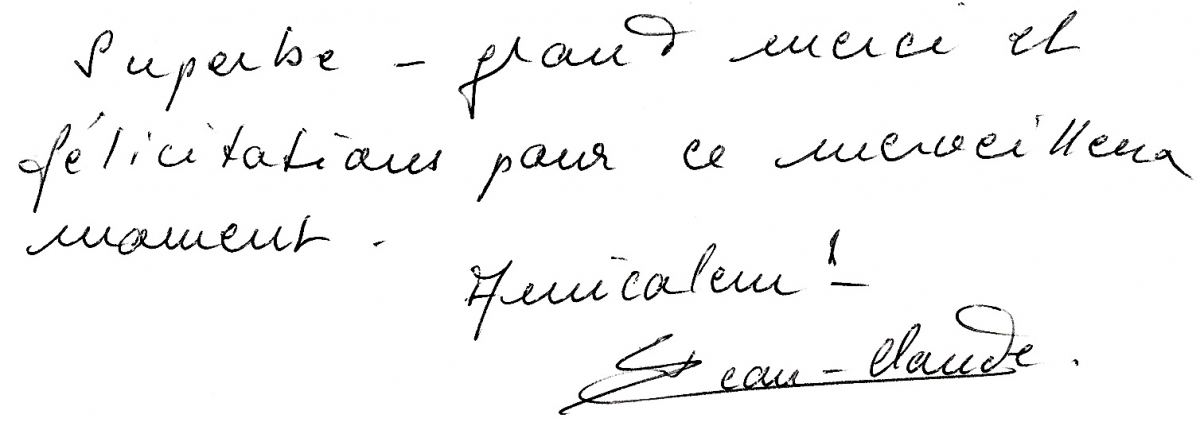 Superbe - grand merci et
félicitations pour ce merveilleux
moment.
Amicalemt -
Jean-Claude.